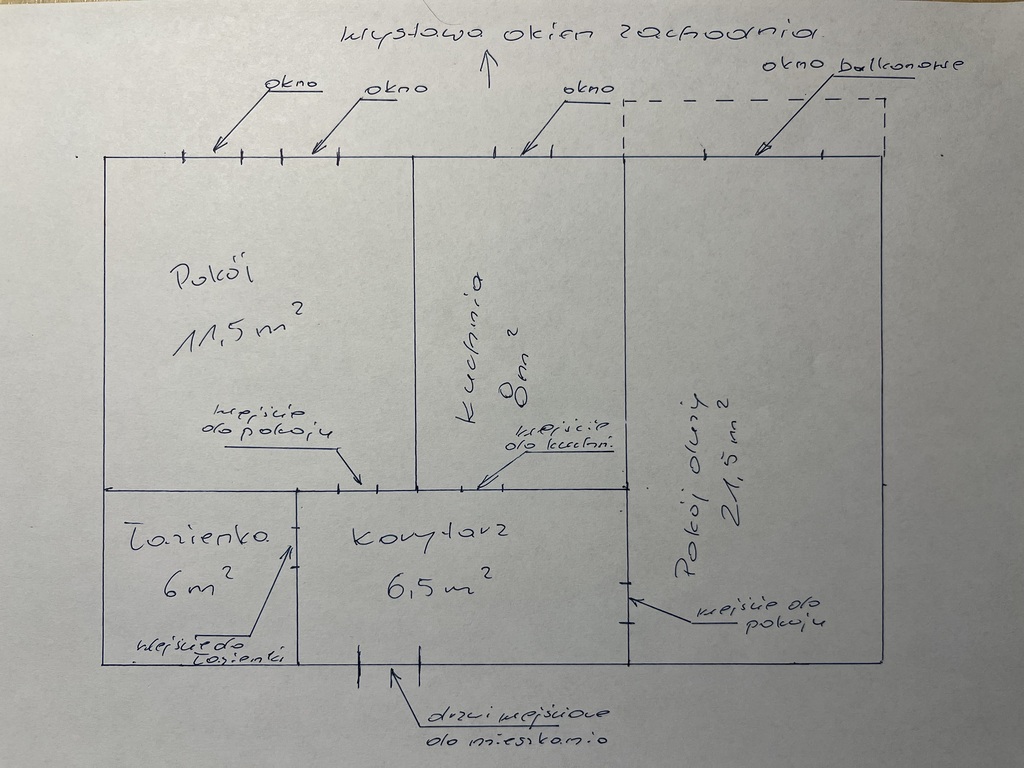 Wystawa okien zachodnia
okno
okno
okno
okno balkonowe
Pokój
11,5 m²
Kuchnia
8 m²
Pokój duży
21,5 m²
wejście
do pokoju
wejście
do kuchni.
Łazienka
6 m²
Korytarz
6,5 m²
wejście do
pokoju
wejście do
Łazienki
drzwi wejściowe
do mieszkania